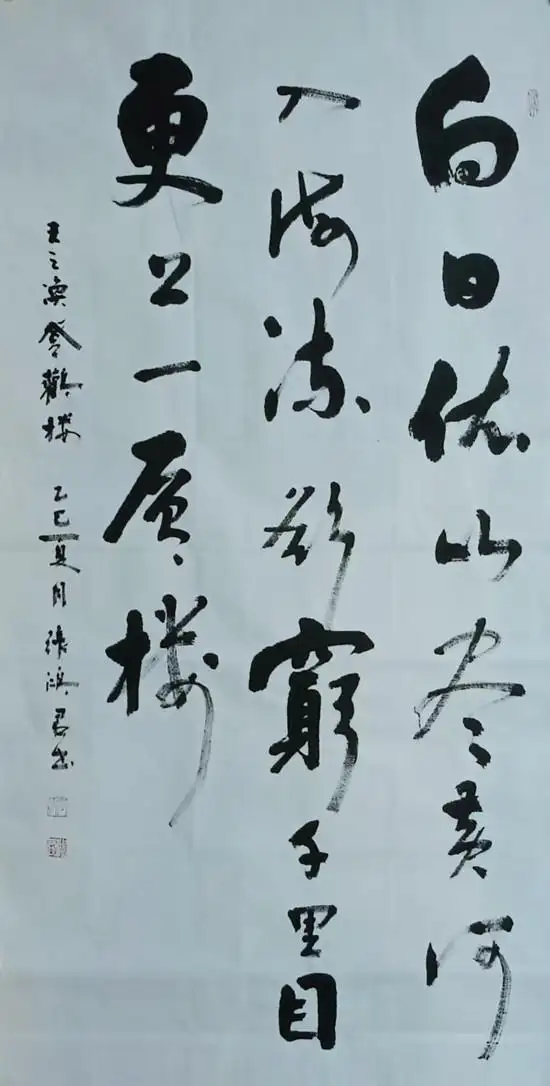 白日依山尽黄河
入海流欲穷千里目
更上一层楼
王之涣登鹳楼 乙巳夏月 张鸿君书